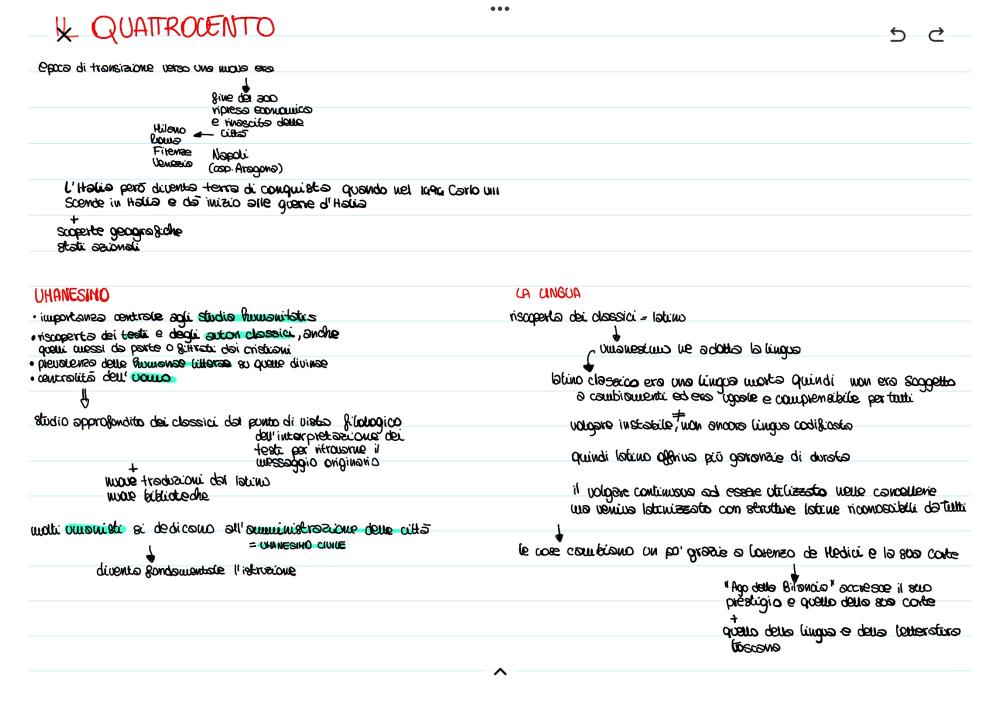 IL QUATTROCENTO
epoca di transizione verso una nuova era
fine del 300
ripresa economica
e rinascita delle
città
Milano
Roma
Firenze
Venezia
Napoli
(casp. Aragona)
L'Italia però diventa terra di conquista quando nel 1494 Carlo VIII
scende in Italia e dà inizio alle guerre d'Italia
+
scoperte geografiche
stati azionali
UMANESIMO
• importanza centrale agli studia humanitatis
• riscoperta dei testi e degli autori classici, anche
quelli messi da parte o filtrati dai cristiani
• prevalenza delle humanae litterae su quelle divinae
• centralità dell'uomo
studio approfondito dei classici dal punto di vista filologico
dell'interpretazione dei
testi per ritrovarne il
messaggio originario
+
nuove traduzioni dal latino
nuove biblioteche
molti umanisti si dedicano all'amministrazione delle città
= UMANESIMO CIVILE
diventa fondamentale l'istruzione
LA LINGUA
riscoperta dei classici = latino
umanesimo ne adotta la lingua
latino classico era una lingua morta quindi non era soggetto
a cambiamenti ed era uguale e comprensibile per tutti
≠
volgare instabile, non ancora lingua codificata
quindi latino offriva più garanzie di durata
il volgare continuava ad essere utilizzato nelle cancellerie
ma veniva latinizzato con strutture latine riconoscibili da tutti
le cose cambiano un po' grazie a Lorenzo de Medici e la sua corte
"Ago della Bilancia" accresce il suo
prestigio e quello della sua corte
+
quello della lingua e della letteratura
toscana